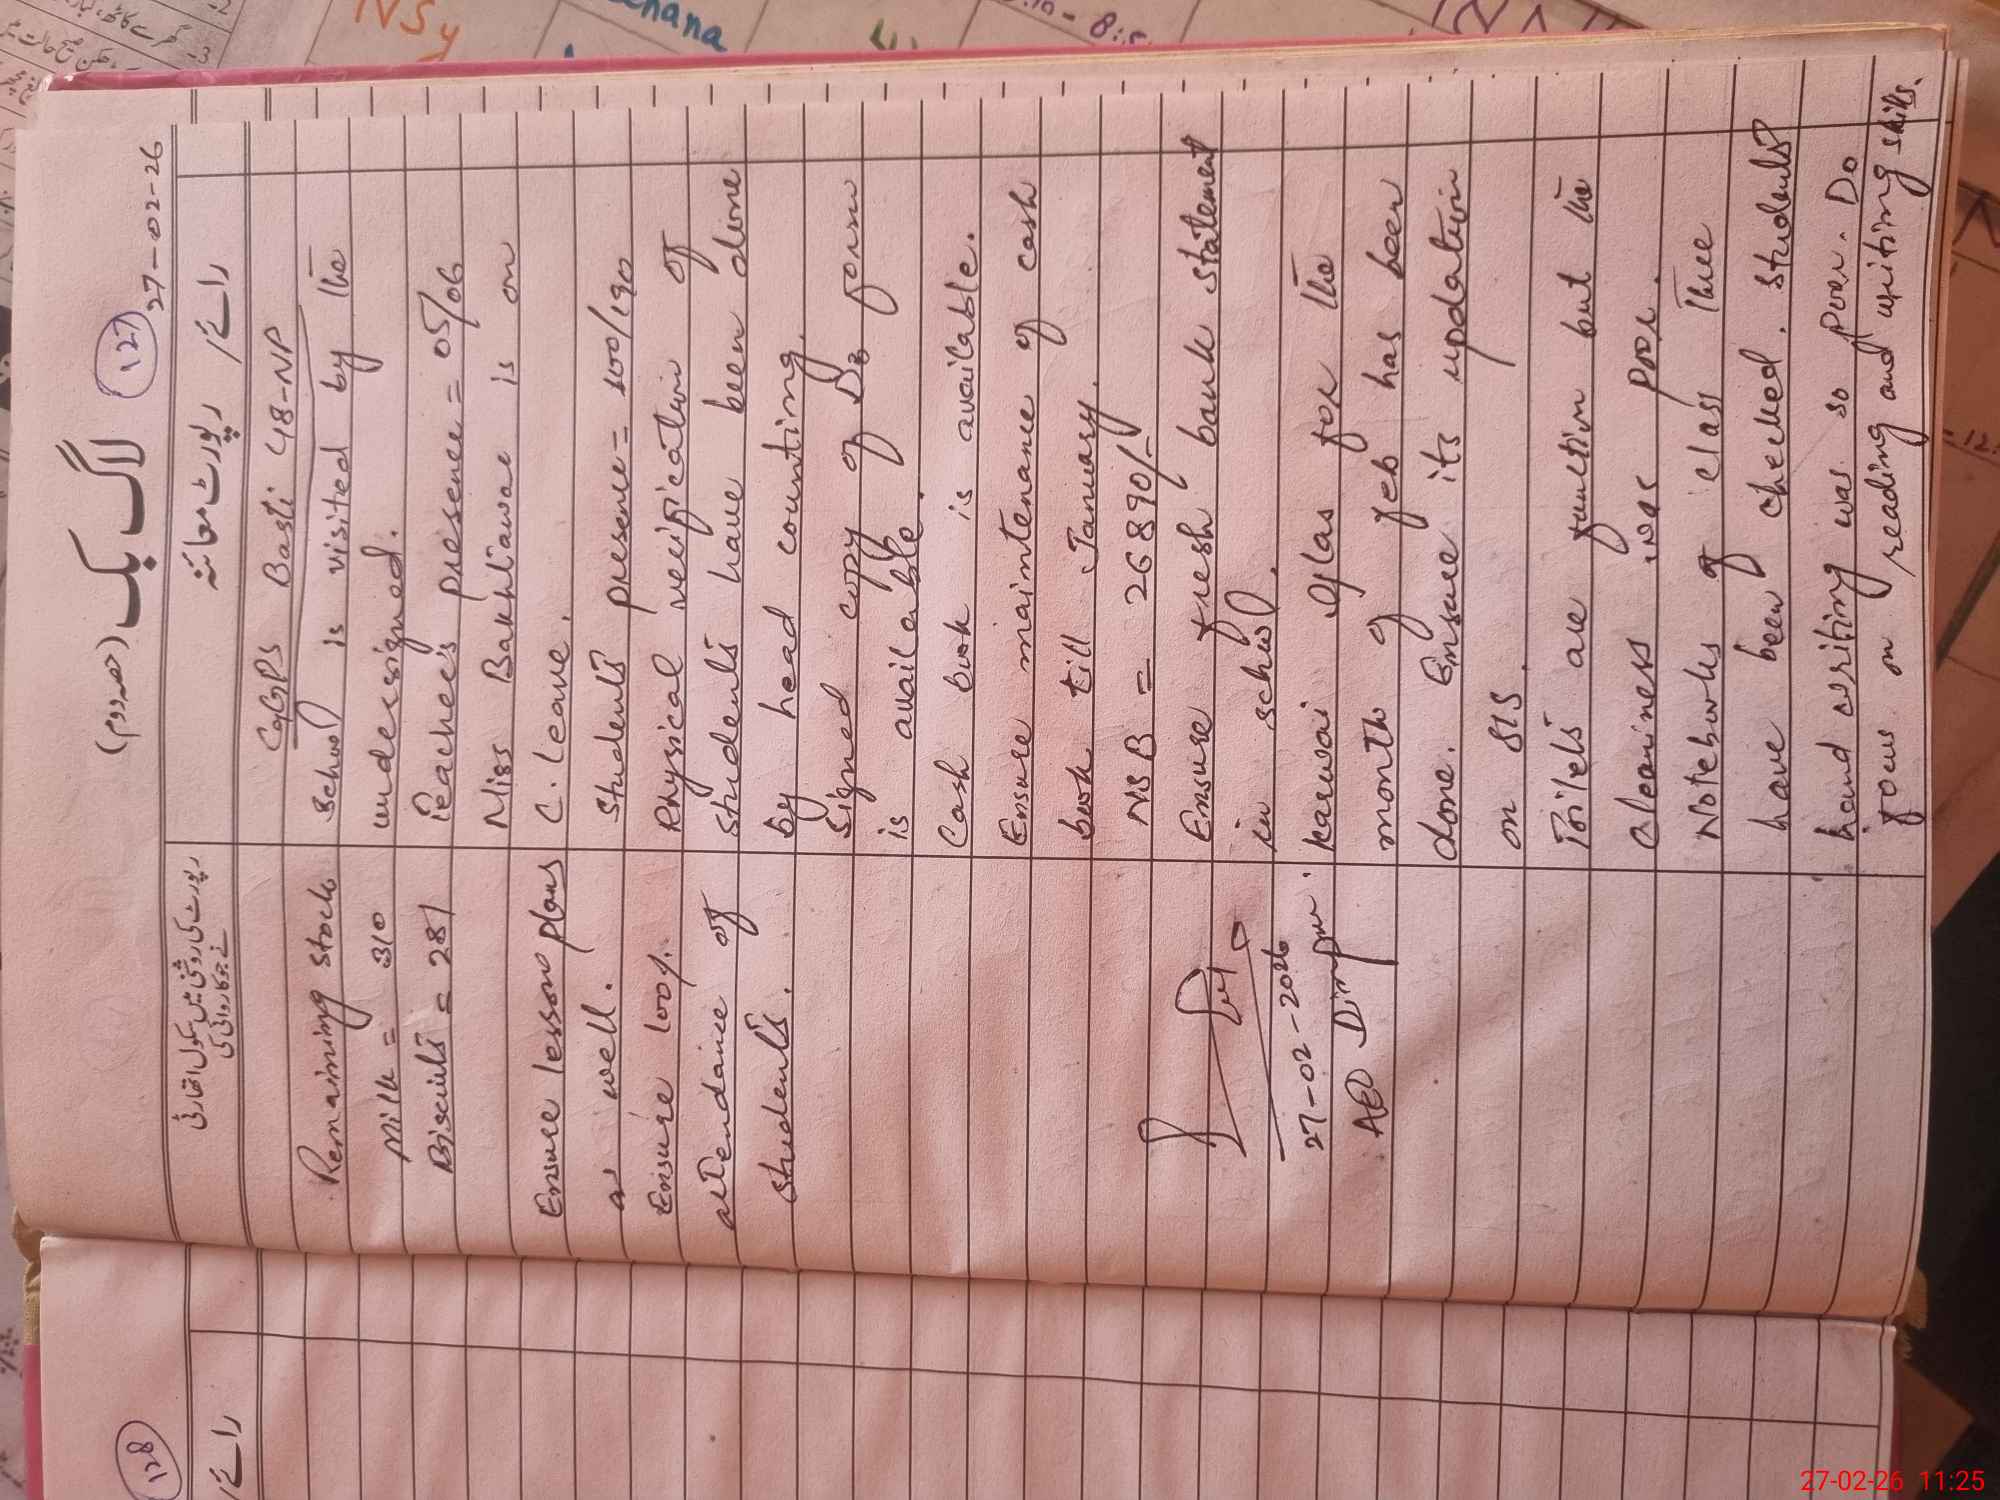 لاگ بک (حصہ دوم)
127
27-02-26
رائے / رپورٹ معائنہ
GGPS Basti 48-NP
School is visited by the
undersigned.
Teachers presence = 05/06
Miss Bakhtiawar is on
C. leave.
Students presence = 100/190
Physical verification of
students have been done
by head counting.
Signed copy of D3 form
is available.
Cash book is available.
Ensure maintenance of cash
book till January.
NSB = 26890/-
Ensure fresh bank statement
in school.
karwai for the
month of feb has been
done. Ensure its updation
on SIS.
Toilets are function but the
cleaniness was poor.
Notebooks of class three
have been checked. students
hand writing was so poor. Do
focus on reading and writing skills.
رپورٹ کی روشنی میں سکول اتھارٹی
نے جو کاروائی کی
Remaining stock
Milk = 310
Biscuits = 281
Ensure lesson plans
as well.
Ensure 100%
attendance of
students.
27-02-2026
AEO
128
رائے /
NSy
27-02-26 11:25